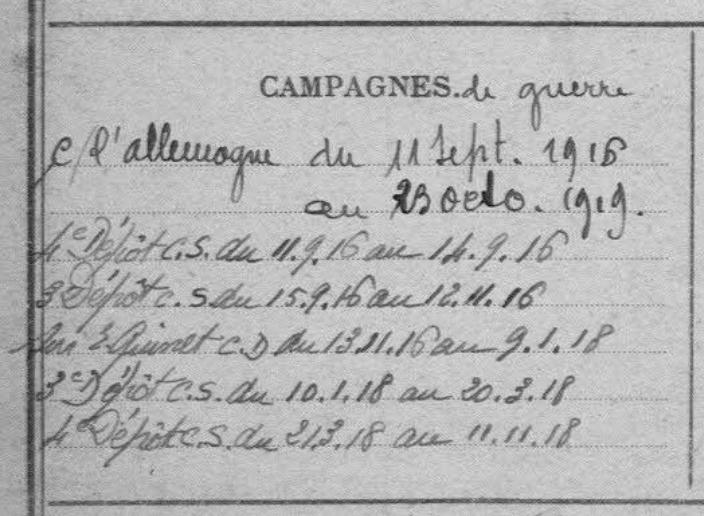 CAMPAGNES. de guerre
c/ l'allemagne du 11 Sept. 1916
au 23 octo. 1919.
4e Dépôt C.S. du 11.9.16 au 14.9.16
3 Dépôt C.S. du 15.9.16 au 12.11.16
E. Quinet C.D du 13.11.16 au 9.1.18
3e Dépôt C.S. du 10.1.18 au 20.3.18
4e Dépôt C.S. du 21.3.18 au 11.11.18